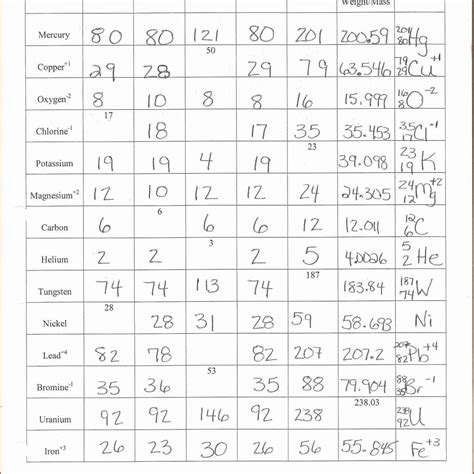 Weight/Mass
Mercury 80 80 121 80 201 200.59 201 80 Hg
Copper+1 29 28 50 29 79 63.546 79 29 Cu+1
Oxygen-2 8 10 8 8 16 15.999 16 8 O-2
Chlorine-1 17 18 17 35 35.453 35 17 Cl-1
Potassium 19 19 4 19 23 39.098 23 19 K
Magnesium+2 12 10 12 12 24 24.305 24 12 Mg+2
Carbon 6 6 6 6 12 12.011 12 6 C
Helium 2 2 3 2 5 4.0026 5 2 He
Tungsten 74 74 113 74 187 183.84 187 74 W
Nickel 28 28 31 28 59 58.693 Ni
Lead+4 82 78 82 207 207.2 207 82 Pb+4
Bromine-1 35 36 53 35 88 79.904 88 35 Br-1
Uranium 92 92 146 92 238 238.03 238 92 U
Iron+3 26 23 30 26 56 55.845 Fe+3